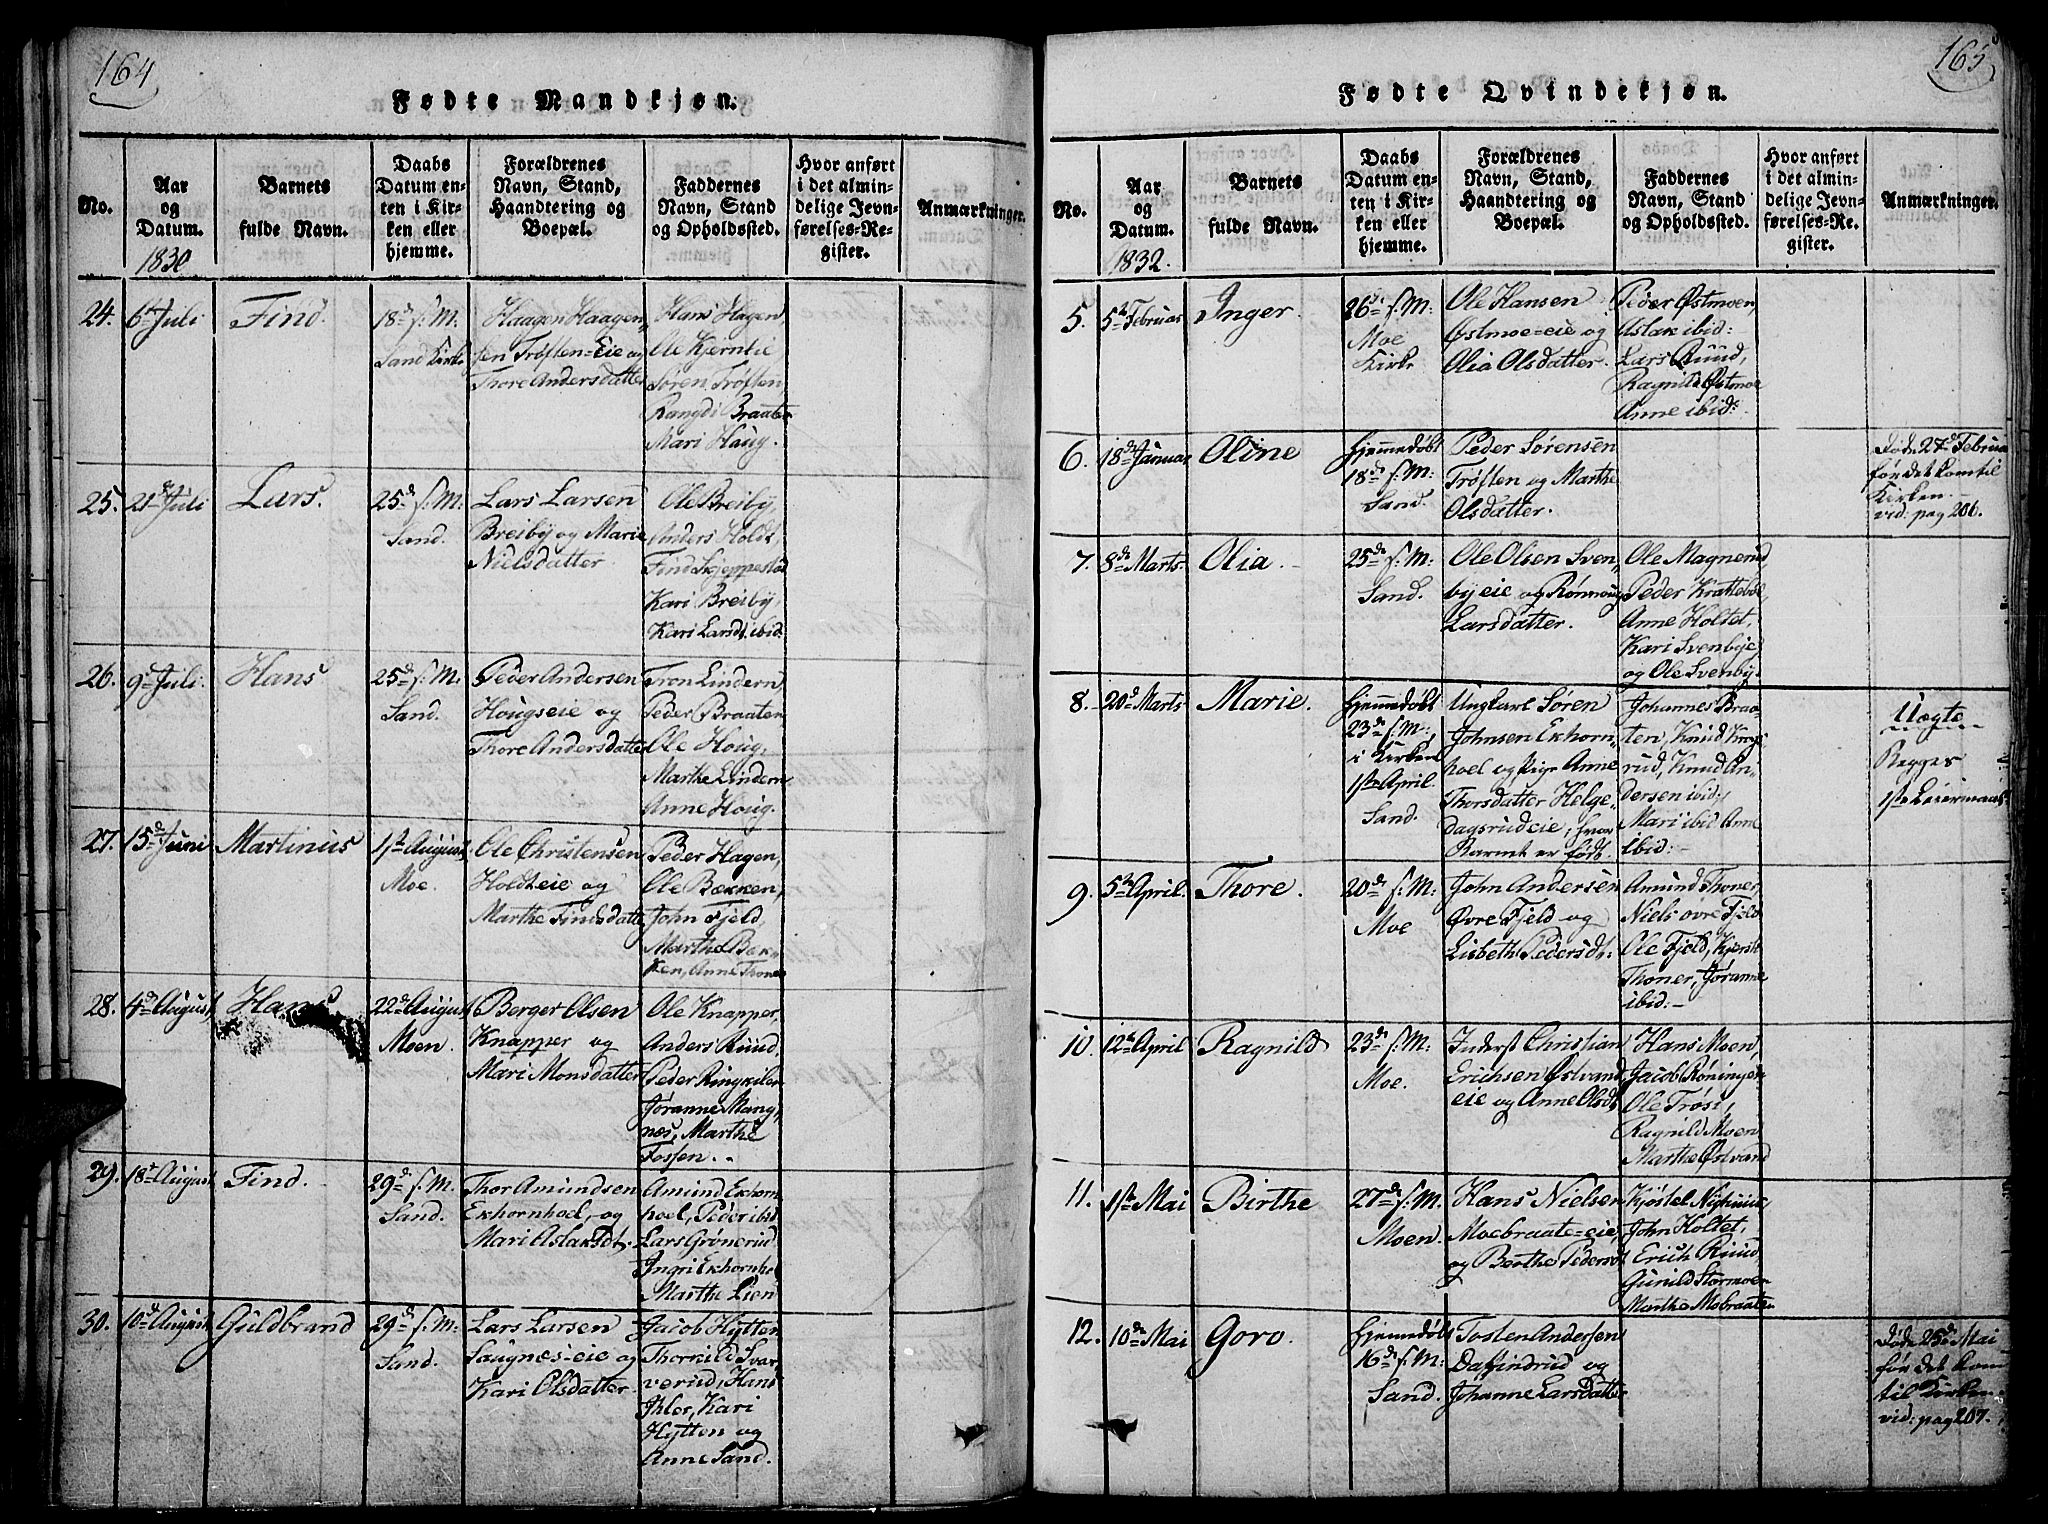 164
Fødte Mandkjøn.
No.
Aar
og
Datum.
1830
Barnets
fulde Navn.
Daabs
Datum en-
ten i Kir-
ken eller
hjemme.
Forældrenes
Navn, Stand,
Haandtering og
Boepæl.
Faddernes
Navn, Stand
og Opholdssted.
Hvor anført
i det almin-
delige Jevn-
førelses-Re-
gister.
Anmærkninger.
24. 6te Juli
Find.
18de s: M:
Sand Kirke
Haagen Haagen-
sen Trøften=Eie og
Thore Andersdatter
Hans Hagen,
Ole Kjerntie
Søren Trøften,
Rangdi Braaten
Mari Haug.
25. 21de Juli
Lars.
25de s: M:
Sand.
Lars Larsen
Breiby og Marie
Nielsdatter.
Ole Breiby,
Anders Holdt
Find Skjeppestød
Kari Breiby,
Kari Larsdt. ibid:
26. 9de Juli.
Hans
25de s: M:
Sand.
Peder Andersen
Hougseie og
Thore Andersdatter
Tron Lindern,
Peder Braaten
Ole Houg,
Marthe Lindern
Anne Houg.
27. 15de Juni
Martinus
1ste August
Moe.
Ole Christensen
Holdteie og
Marthe Findsdatter
Peder Hagen,
Ole Bækken,
John Fjeld,
Marthe Bæk-
ken, Anne Thoner
28. 4de August,
Hans
22de August
Moen.
Berger Olsen
Knapper og
Mari Monsdatter
Ole Knapper,
Anders Ruud,
Peder Ringkilen
Jøranne Mang-
næs, Marthe
Fossen.
29. 18de August
Find.
29de s: M.
Sand.
Thor Amundsen
Ekhornhoel, og
Mari Aslaksdt.
Amund Ekhorn-
hoel, Peder ibid
Lars Grønerud
Ingri Ekhornhoel
Marthe Lien
30. 10de August
Guldbrand
29de s: M:
Sand.
Lars Larsen
Saugnes-eie og
Kari Olsdatter
Jacob Hytten
Thorkild Svar-
verud, Hans
Ihler, Kari
Hytten og
Anne Sand.
165
Fødte Qvindekjøn.
No.
Aar
og
Datum.
1832.
Barnets
fulde Navn.
Daabs
Datum en-
ten i Kir-
ken eller
hjemme.
Forældrenes
Navn, Stand,
Haandtering og
Boepæl.
Faddernes
Navn, Stand
og Opholdssted.
Hvor anført
i det almin-
delige Jevn-
førelses-Re-
gister.
Anmærkninger.
5. 5te Februar
Inger
26de s: M:
Moe
Kirke
Ole Hansen
Østmoe=eie og
Olia Olsdatter.
Peder Østmoen,
Aslak ibid:
Lars Ruud,
Ragnild Østmoe
Anne ibid:
6. 18de Januar
Oline
Hjemmedøbt
18de s: M:
Sand.
Peder Sørensen
Trøften og Marthe
Olsdatter.
Døde 27de Februar
før det kom til
Kirken.
vid: pag 206.
7. 8de Marts
Olia
25de s: M:
Sand.
Ole Olsen Sven-
by eie og Rønnoug
Larsdatter.
Ole Magnerud
Peder Kratteboe,
Anne Holtet,
Kari Svenbye,
og Ole Svenby.
8. 20de Marts
Marie.
Hjemmedøbt
23de s: M:,
i Kirken
1ste April.
Sand.
Ungkarl Søren
Johnsen Ekhorn-
hoel og Pige Anne
Thorsdatter Helge-
dagsrudeie, hvor
Barnet er født.
Johannes Braa-
ten, Knud Krogs-
rud, Knud An-
dersen ibid,
Mari ibid Anne
ibid:
Uægte
Begges
1ste Leiermaal.
9. 5te April.
Thore.
20de s: M:
Moe
John Andersen
Øvre Fjeld og
Lisbeth Pedersdt:
Amund Thoner,
Niels øvre Fjeld
Ole Fjeld, Kjersti
Thoner, Jøranne
ibid:
10. 12te April
Ragnild
23de s: M:
Moe.
Inderst Christian
Erichsen Østvand
eie og Anne Olsdt
Hans Moen,
Jacob Røningen
Ole Trøst,
Ragnild Moen
Marthe Østvand
11. 1ste Mai
Birthe
27de s: M:
Moen.
Hans Nielsen
Moebraate=eie,
og Berthe Pedersdt
Kjøstel
John Holtet,
Erich Ruud,
Gunild Stormoen
Marthe Mobraaten
12. 10de Mai
Goro.
Hjemmedøbt
16de s: M:
Sand.
Tosten Andersen
Daffindrud og
Johanne Larsdatter
Døde 25de Mai
før det kom
til Kirken.
vid: pag 207.